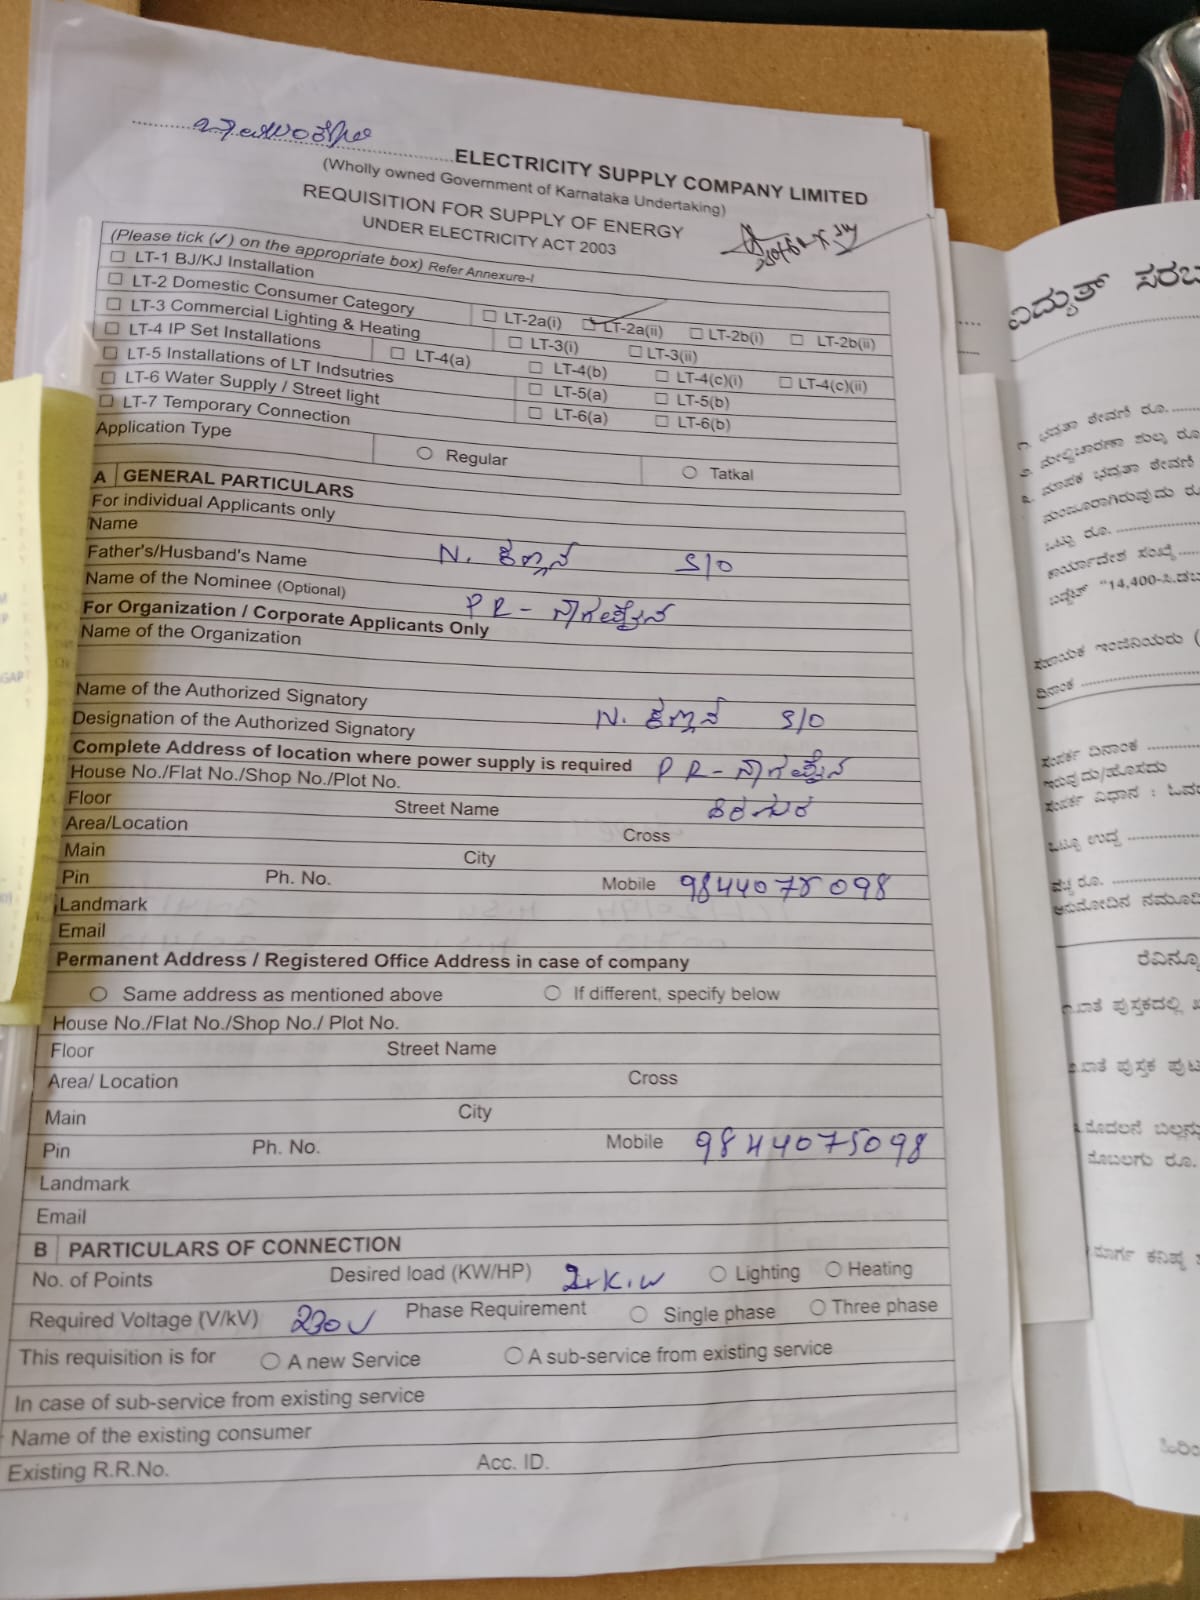 ELECTRICITY SUPPLY COMPANY LIMITED
(Wholly owned Government of Karnataka Undertaking)
REQUISITION FOR SUPPLY OF ENERGY
UNDER ELECTRICITY ACT 2003
(Please tick (✓) on the appropriate box) Refer Annexure-I
LT-1 BJ/KJ Installation
LT-2 Domestic Consumer Category LT-2a(i) LT-2a(ii) LT-2b(i) LT-2b(ii)
LT-3 Commercial Lighting & Heating LT-3(i) LT-3(ii)
LT-4 IP Set Installations LT-4(a) LT-4(b) LT-4(c)(i) LT-4(c)(ii)
LT-5 Installations of LT Indsutries LT-5(a) LT-5(b)
LT-6 Water Supply / Street light LT-6(a) LT-6(b)
LT-7 Temporary Connection
Application Type Regular Tatkal
A GENERAL PARTICULARS
For individual Applicants only
Name
Father's/Husband's Name N. ಕಣ್ಣನ್ S/O
Name of the Nominee (Optional) PR -
For Organization / Corporate Applicants Only
Name of the Organization
Name of the Authorized Signatory
Designation of the Authorized Signatory N. ಕಣ್ಣನ್ S/O
Complete Address of location where power supply is required PR -
House No./Flat No./Shop No./Plot No.
Floor Street Name
Area/Location Cross
Main City
Pin Ph. No. Mobile 9844075098
Landmark
Email
Permanent Address / Registered Office Address in case of company
Same address as mentioned above If different, specify below
House No./Flat No./Shop No./ Plot No.
Floor Street Name
Area/ Location Cross
Main City
Pin Ph. No. Mobile 9844075098
Landmark
Email
B PARTICULARS OF CONNECTION
No. of Points Desired load (KW/HP) K.W Lighting Heating
Required Voltage (V/kV) 230V Phase Requirement Single phase Three phase
This requisition is for A new Service A sub-service from existing service
In case of sub-service from existing service
Name of the existing consumer
Existing R.R.No. Acc. ID.
ವಿದ್ಯುತ್ ಸರಬ
೧. ಭದ್ರತಾ ಠೇವಣಿ ರೂ.
೨. ಮೇಲ್ವಿಚಾರಣಾ ಶುಲ್ಕ ರೂ
೩. ಮಾಪಕ ಭದ್ರತಾ ಠೇವಣಿ
ಮಂಜೂರಾಗಿರುವುದು ರೂ
ಒಟ್ಟು ರೂ.
ಕಾರ್ಯಾದೇಶ ಸಂಖ್ಯೆ
ಬಡ್ಜೆಟ್ "14,400-ಸಿ.ಡಬ
ಸಹಾಯಕ ಇಂಜಿನಿಯರು (
ದಿನಾಂಕ
ಸಂಪರ್ಕ ದಿನಾಂಕ
ಇರುವುದು/ಹೊಸದು
ಸಂಪರ್ಕ ವಿಧಾನ : ಓವರ
ಒಟ್ಟೂ ಉದ್ದ
ವೆಚ್ಚ ರೂ.
ಅನುಮೋದಿನ ನಮೂದಿ
ರೆವಿನ್ಯೂ
೧.ಖಾತೆ ಪುಸ್ತಕದಲ್ಲಿ
೨.ಖಾತೆ ಪುಸ್ತಕ ಪುಟ
೩.ಮೊದಲನೆ ಬಿಲ್ಲನ್ನು
ಮೊಬಲಗು ರೂ.
ಮಾರ್ಗ ಕನಿಷ್ಠ
ಹಿರಿಂ